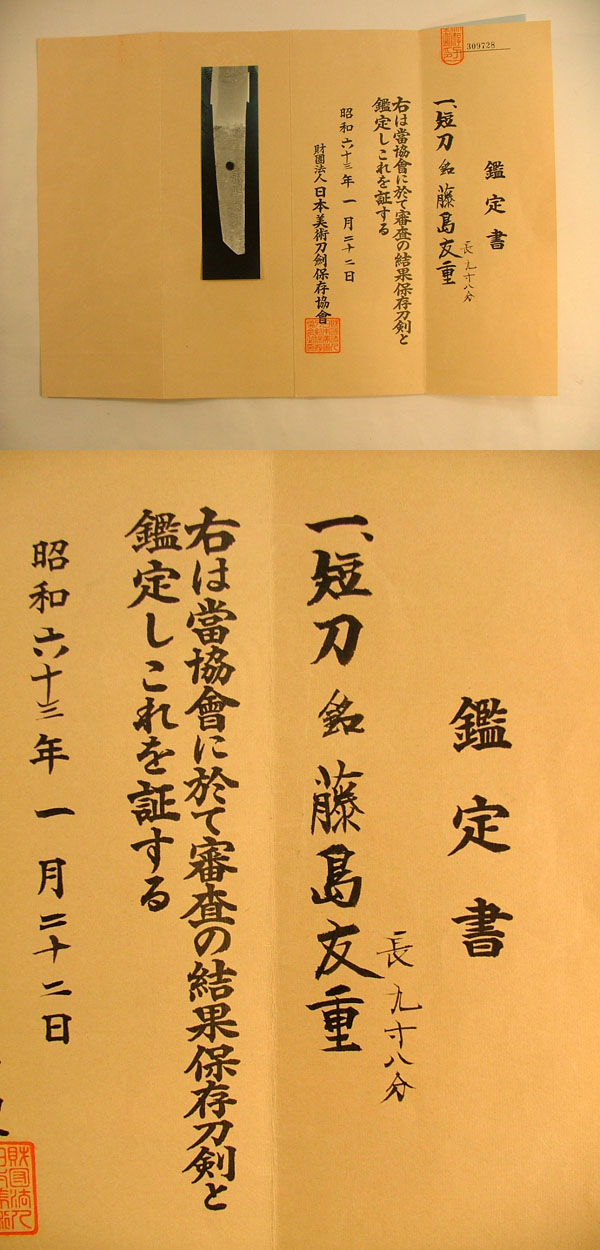 309728
鑑定書
一、短刀 銘 藤島友重
長九寸八分
右は當協會に於て審査の結果保存刀剣と
鑑定しこれを証する
昭和六十三年一月二十二日
財團法人日本美術刀劍保存協會
鑑定書
一、短刀 銘 藤島友重
長九寸八分
右は當協會に於て審査の結果保存刀剣と
鑑定しこれを証する
昭和六十三年一月二十二日